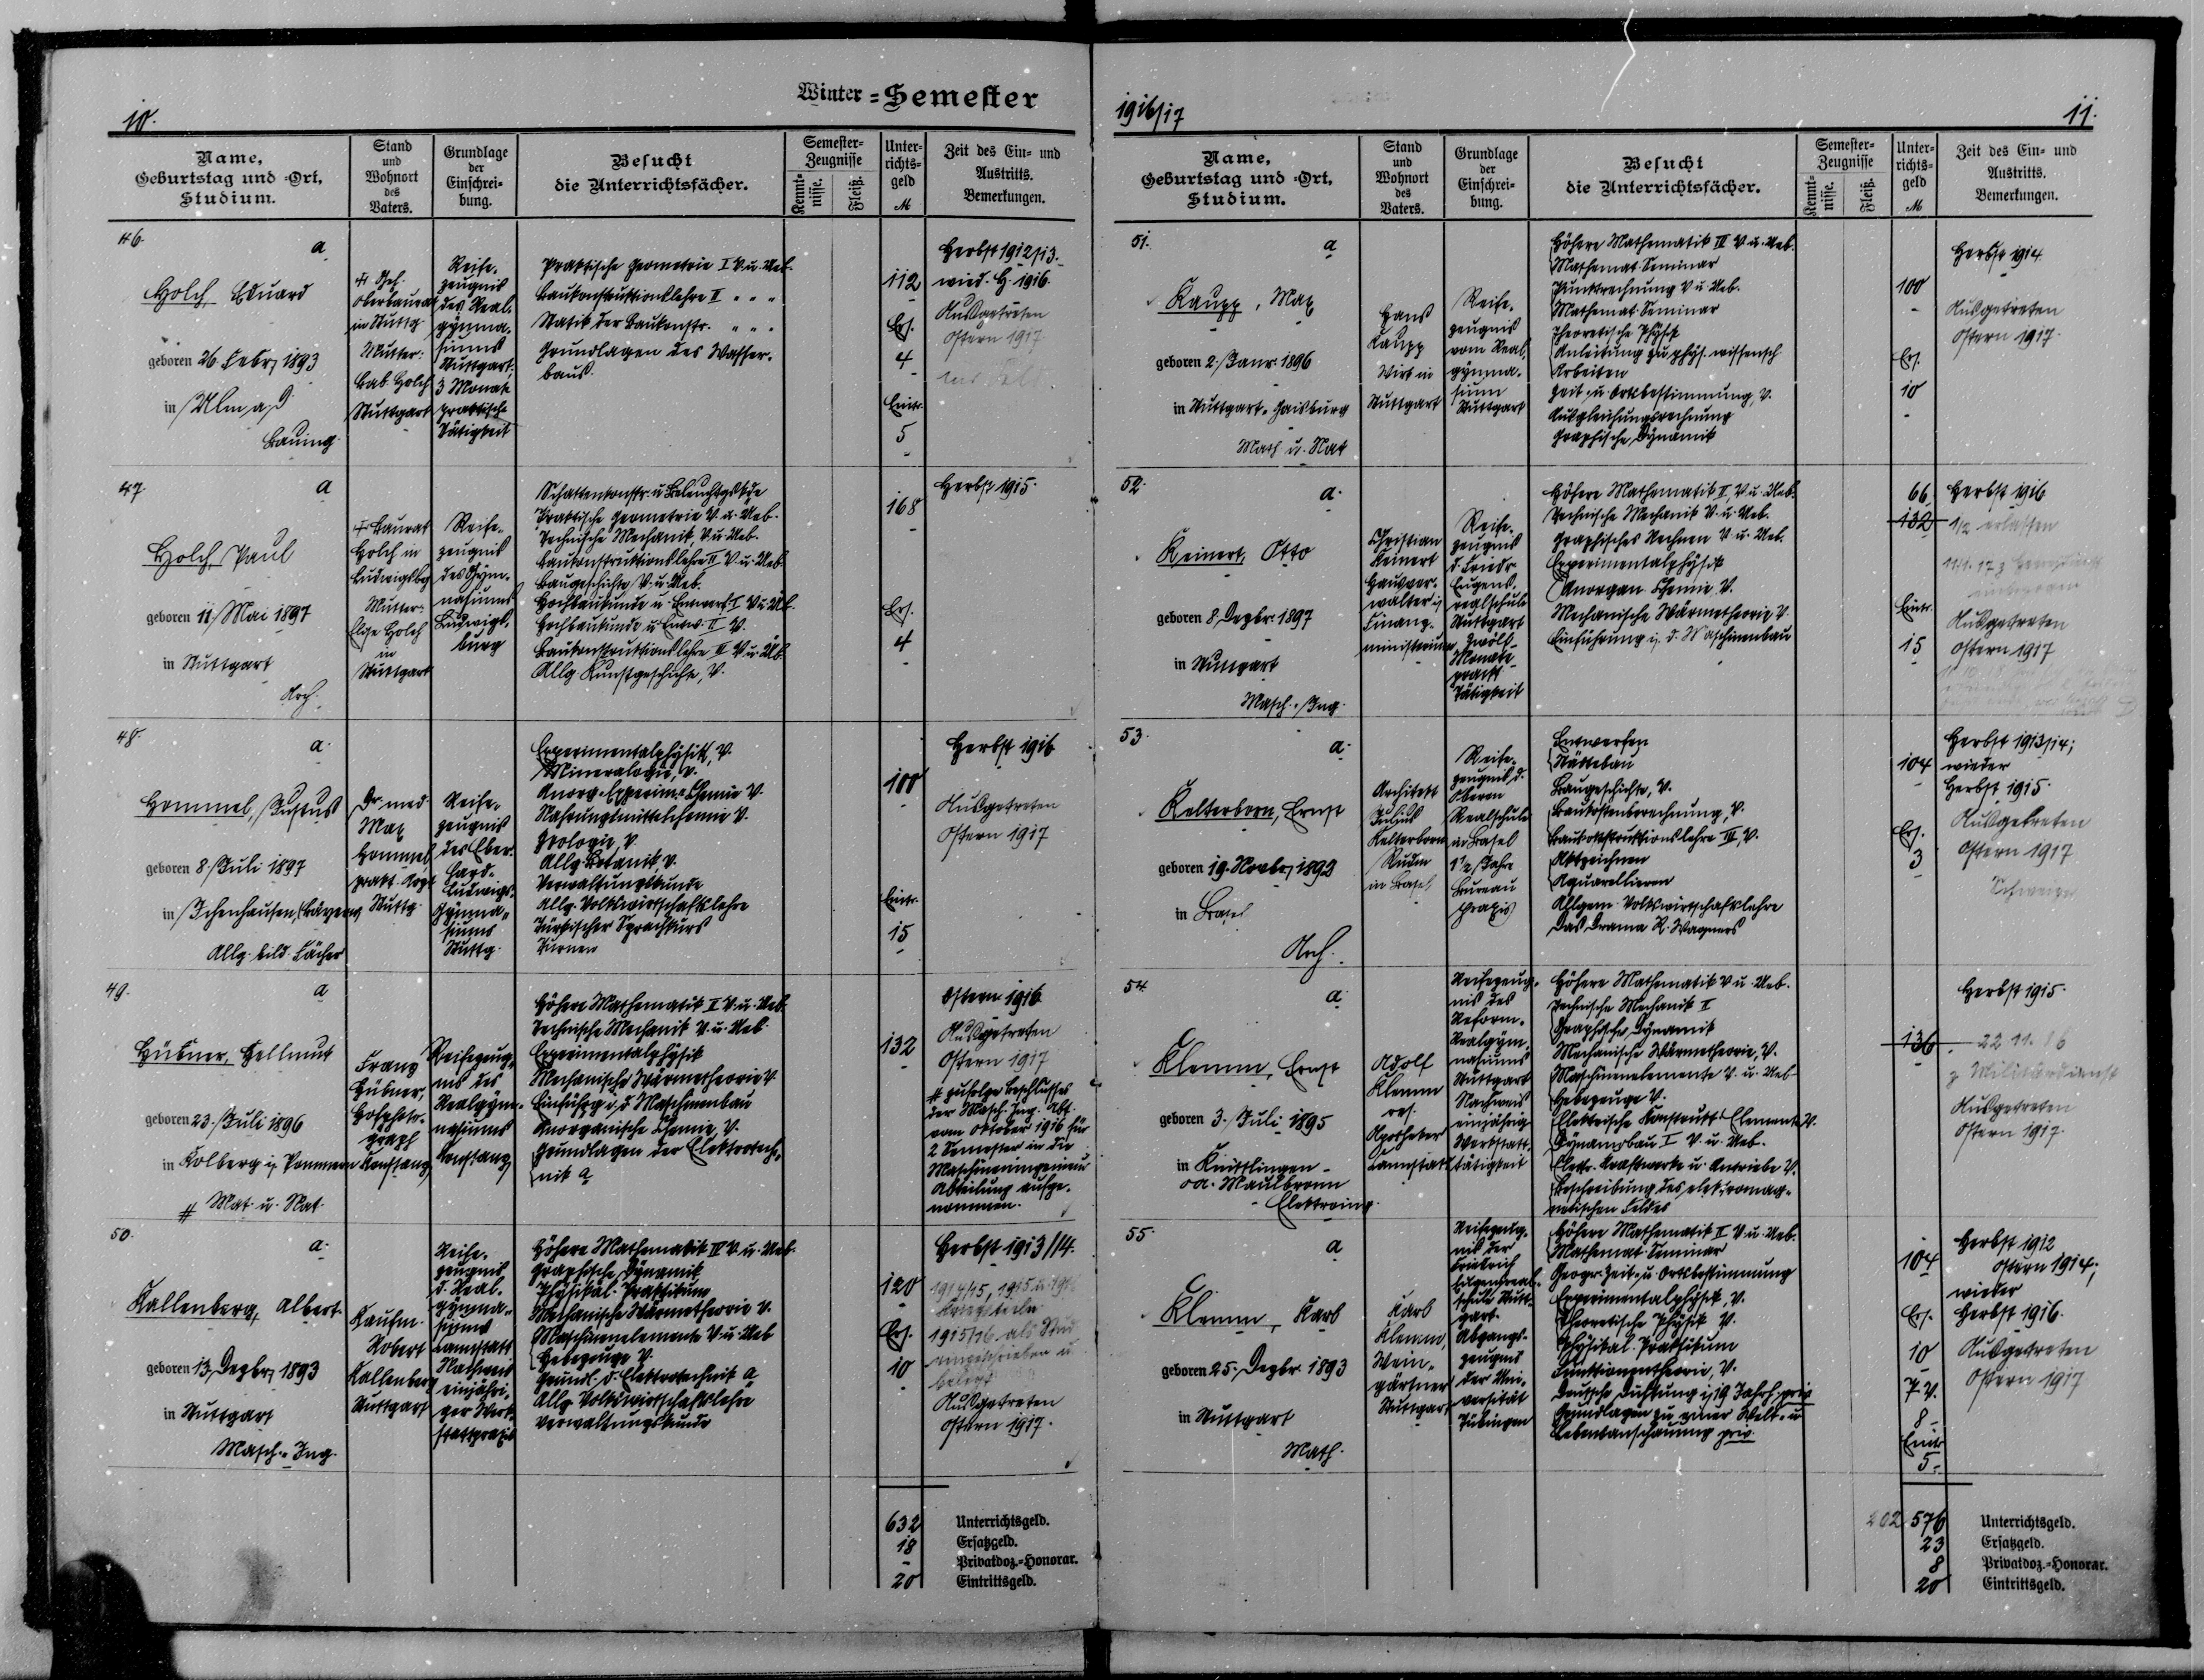 10.
Winter-Semester
Name,
Geburtstag und -Ort,
Studium.
Stand
und
Wohnort
des
Vaters.
Grundlage
der
Einschrei-
bung.
Besucht
die Unterrichtsfächer.
Semester-
Zeugnisse
Kennt-
nisse.
Fleiß.
Unter-
richts-
geld
M
Zeit des Ein- und
Austritts.
Bemerkungen.
46.
a
Holch, Eduard
geboren 26. Febr. 1893
in Ulm a. D.
Bauing.
Oberbaurat
in Stuttg.
Mutter:
Bab. Holch
Stuttgart
Reife-
zeugnis
des Real-
gymna-
siums
Stuttgart.
3 Monate
praktische
Tätigkeit
Praktische Geometrie I V. u. Ueb.
Baukonstruktionslehre II " " "
Statik der Baukonstr. " " "
Grundlagen des Wasser-
baus.
112
Ers.
4
Eintr.
5
Herbst 1912/13.
wied. H. 1916.
Ausgetreten
Ostern 1917
47.
a
Holch, Paul
geboren 11. Mai 1897
in Stuttgart
Arch.
† Baurat
Holch in
Ludwigsbg
Mutter:
Elise Holch
in
Stuttgart
Reife-
zeugnis
des Gym-
nasiums
Ludwigs-
burg
Schattenkonstr. u. Beleuchtgskde
Praktische Geometrie V. u. Ueb.
Technische Mechanik, V. u. Ueb.
Baukonstruktionslehre II V. u. Ueb.
Baugeschichte V. u. Ueb.
Hochbaukunde u. Entwerf. I V. u. Üb.
Hochbaukunde u. Entw. II V.
Baukonstruktionslehre III V. u. Üb.
Allg. Kunstgeschichte, V.
168
Ers.
4
Herbst 1915.
48.
a.
Hommel, Justus
geboren 8. Juli 1897
in Ichenhausen, Bayern
Allg. bild. Fächer
Dr. med.
Max
Hommel,
prakt. Arzt
Stuttg.
Reife-
zeugnis
des Eber-
hard-
Ludwigs-
Gymna-
siums
Stuttg.
Experimentalphysik, V.
Mineralogie, V.
Anorg. Experim.-Chemie V.
Nahrungsmittelchemie V.
Geologie, V.
Allg. Botanik, V.
Verwaltungskunde
Allg. Volkswirtschaftslehre
Türkischer Sprachkurs
Turnen
100
Eintr.
15
Herbst 1916
Ausgetreten
Ostern 1917
49.
a
Hübner, Hellmut
geboren 23. Juli 1896
in Kolberg i. Pommern
# Mat. u. Nat.
Franz
Hübner,
Hofphoto-
graph
Konstanz
Reifezeug-
nis des
Realgym-
nasiums
Konstanz
Höhere Mathematik II V. u. Ueb.
Technische Mechanik V. u. Ueb.
Experimentalphysik
Mechanische Wärmetheorie V.
Einführg i. d. Maschinenbau
Anorganische Chemie, V.
Grundlagen der Elektrotech-
nik a
132
Ostern 1916
Ausgetreten
Ostern 1917
# zufolge Beschlusses
der Masch. Ing. Abt.
vom Oktober 1916 für
2 Semester in die
Maschineningenieur
Abteilung aufge-
nommen.
50.
a.
Kallenberg, Albert
geboren 13. Dezbr. 1893
in Stuttgart
Masch.-Ing.
Kaufm.
Robert
Kallenberg
Stuttgart
Reife-
zeugnis
d. Real-
gymna-
siums
Cannstatt
Nachweis
einjähri-
ger Werk-
stattpraxis
Höhere Mathematik IV V. u. Ueb.
Graphische Dynamik
Physikal. Praktikum
Mechanische Wärmetheorie V.
Maschinenelemente V. u. Ueb
Hebezeuge V.
Grundl. d. Elektrotechnik a
Allg. Volkswirtschaftslehre
Verwaltungskunde
120
Ers.
10
Herbst 1913/14.
1915/16 als Stud
eingeschrieben u.
belegt
Ausgetreten
Ostern 1917.
632 Unterrichtsgeld.
18 Ersatzgeld.
- Privatdoz.-Honorar.
20 Eintrittsgeld.
1916/17
11.
Name,
Geburtstag und -Ort,
Studium.
Stand
und
Wohnort
des
Vaters.
Grundlage
der
Einschrei-
bung.
Besucht
die Unterrichtsfächer.
Semester-
Zeugnisse
Kennt-
nisse.
Fleiß.
Unter-
richts-
geld
M
Zeit des Ein- und
Austritts.
Bemerkungen.
51.
a
Kaupp, Max
geboren 2. Janr. 1896
in Stuttgart-Gaisburg
Math. u. Nat
Hans
Kaupp
Wirt in
Stuttgart
Reife-
zeugnis
vom Real-
gymna-
sium
Stuttgart
Höhere Mathematik III V. u. Ueb.
Mathemat. Seminar
Punktrechnung V. u. Ueb.
Mathemat. Seminar
Theoretische Physik
Anleitung zu phys. wissensch
Arbeiten
Zeit- u. Ortsbestimmung, V.
Ausgleichungsrechnung
Graphische Dynamik
100
Ers.
10
Herbst 1914
Ausgetreten
Ostern 1917.
52.
a.
Keinert, Otto
geboren 8. Dezbr. 1897
in Stuttgart
Masch.-Ing.
Christian
Keinert
Hausver-
walter i.
Finanz-
ministerium
Reife-
zeugnis
d. Friedr.
Eugens-
realschule
Stuttgart
Zwölf
Monate
prakt
Tätigkeit
Höhere Mathematik II, V. u. Ueb.
Technische Mechanik V. u. Ueb.
Graphisches Rechnen V. u. Ueb.
Experimentalphysik
Anorgan. Chemie V.
Mechanische Wärmetheorie V.
Einführung i. d. Maschinenbau
66
132
Eintr.
15
Herbst 1916
1/2 erlassen
Ausgetreten
Ostern 1917
53.
a.
Kelterborn, Ernst
geboren 19. Novbr. 1892
in Basel
Arch.
Architekt
Julius
Kelterborn
in Basel
Reife-
zeugnis d.
Oberen
Realschule
in Basel
1 1/2 Jahre
Bureau
praxis
Entwerfen
Städtebau
Baugeschichte, V.
Baukostenberechnung, V.
Baukonstruktionslehre III, V.
Aktzeichnen
Aquarellieren
Allgem. Volkswirtschaftslehre
Das Drama R. Wagners
104
Ers.
3
Herbst 1913/14;
wieder
Herbst 1915.
Ausgetreten
Ostern 1917
Schweizer
54.
a.
Klemm, Ernst
geboren 3. Juli 1895
in Knittlingen-
OA. Maulbronn
Elektroing.
Adolf
Klemm
res.
Apotheker
Cannstatt
Reifezeug-
nis des
Reform-
Realgym-
nasiums
Stuttgart
Nachweis
einjährig
Werkstatt-
tätigkeit
Höhere Mathematik V. u. Ueb.
Technische Mechanik II
Graphische Dynamik
Mechanische Wärmetheorie, V.
Maschinenelemente V. u. Ueb.
Hebezeuge V.
Elektrische Konstrukt. Elemente V.
Dynamobau I V. u. Ueb.
Elektr. Kraftwerke u. Antriebe V.
Beschreibung des elektromag-
netischen Feldes
136
Herbst 1915.
22. 11. 16
z. Militärdienst
Ausgetreten
Ostern 1917.
55.
a
Klemm, Karl
geboren 25. Dezbr. 1893
in Stuttgart
Math.
Karl
Klemm,
Wein-
gärtner
Stuttgart
Reifezeug-
nis der
Friedrich
Eugensreal-
schule Stutt-
gart.
Abgangs-
zeugnis
der Uni-
versität
Tübingen
Höhere Mathematik II V. u. Ueb.
Mathemat. Seminar
Geogr. Zeit- u. Ortsbestimmung
Experimentalphysik, V.
Theoretische Physik V.
Physikal. Praktikum
Funktionentheorie, V.
Deutsche Dichtung i. 19. Jahrh. priv
Grundlagen zu einer Welt- u.
Lebensanschauung priv.
104
Ers.
10
8
Eintr
5.
Herbst 1912
Ostern 1914;
wieder
Herbst 1916.
Ausgetreten
Ostern 1917
202 576 Unterrichtsgeld.
23 Ersatzgeld.
8 Privatdoz.-Honorar.
20 Eintrittsgeld.